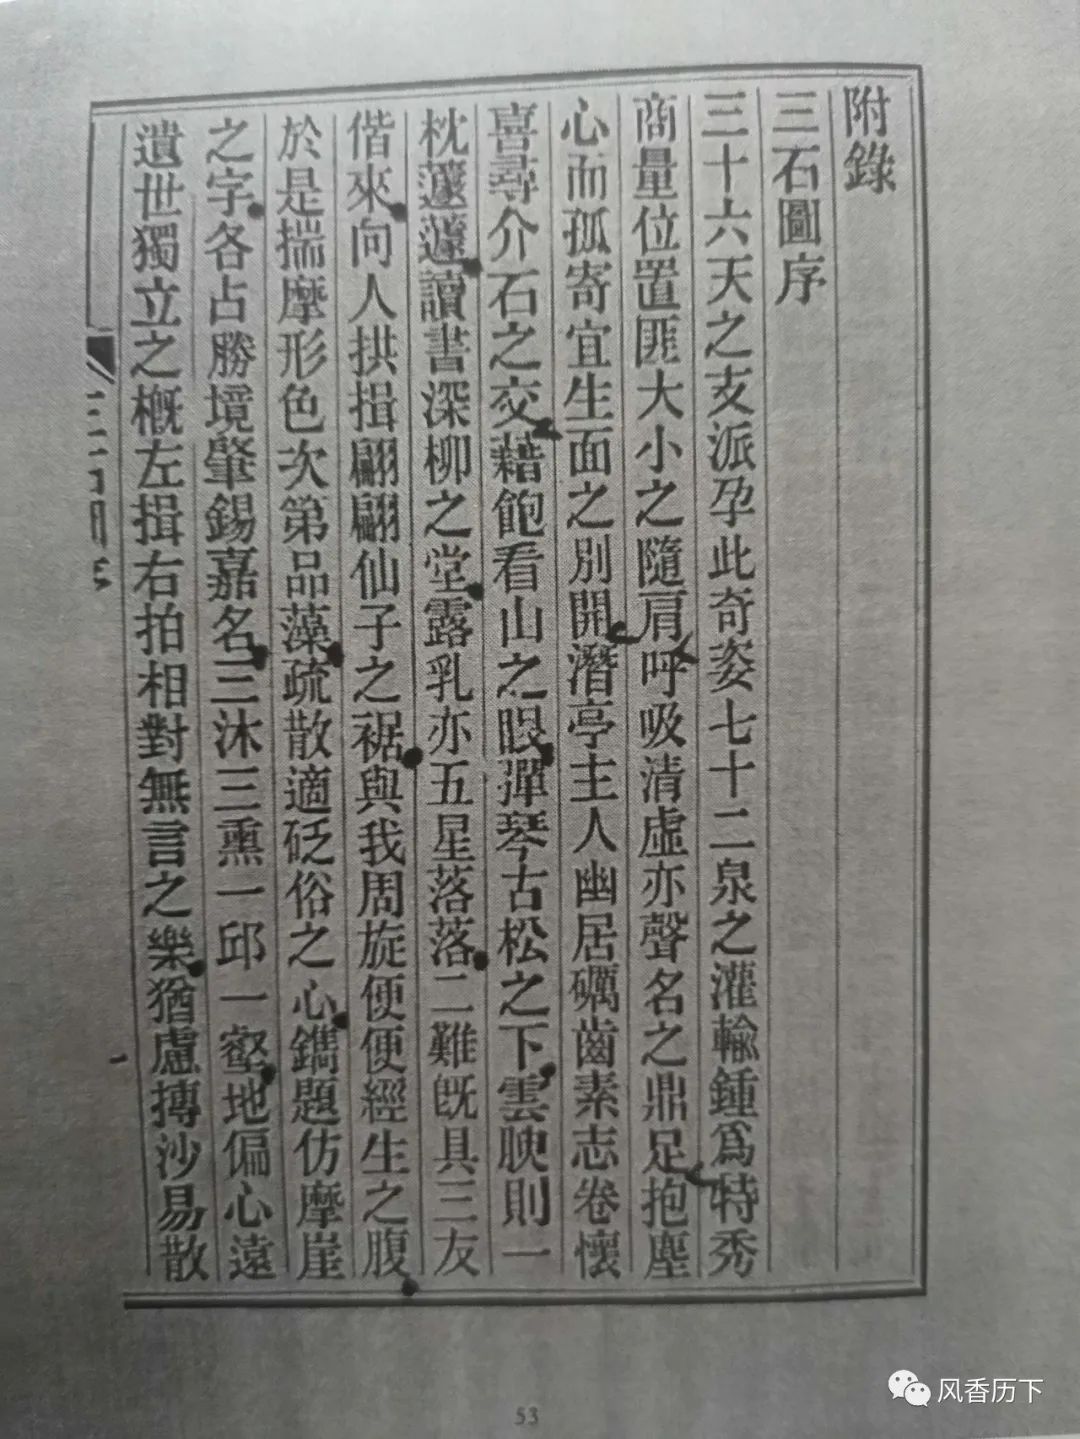 附錄
三石圖序
三十六天之支派孕此奇姿七十二泉之灌輸鍾爲特秀
商量位置匪大小之隨肩呼吸清虛亦聲名之鼎足抱塵
心而孤寄宜生面之別開潛亭主人幽居礪齒素志卷懷
喜尋介石之交藉飽看山之眼彈琴古松之下雲腴則一
枕蘧蘧讀書深柳之堂露乳亦五星落落二難既具三友
偕來向人拱揖翩翩仙子之裾與我周旋便便經生之腹
於是揣摩形色次第品藻疏散適砭俗之心鐫題仿摩崖
之字各占勝境肇錫嘉名三沐三熏一邱一壑地偏心遠
遺世獨立之概左揖右拍相對無言之樂猶慮摶沙易散
53
风香历下